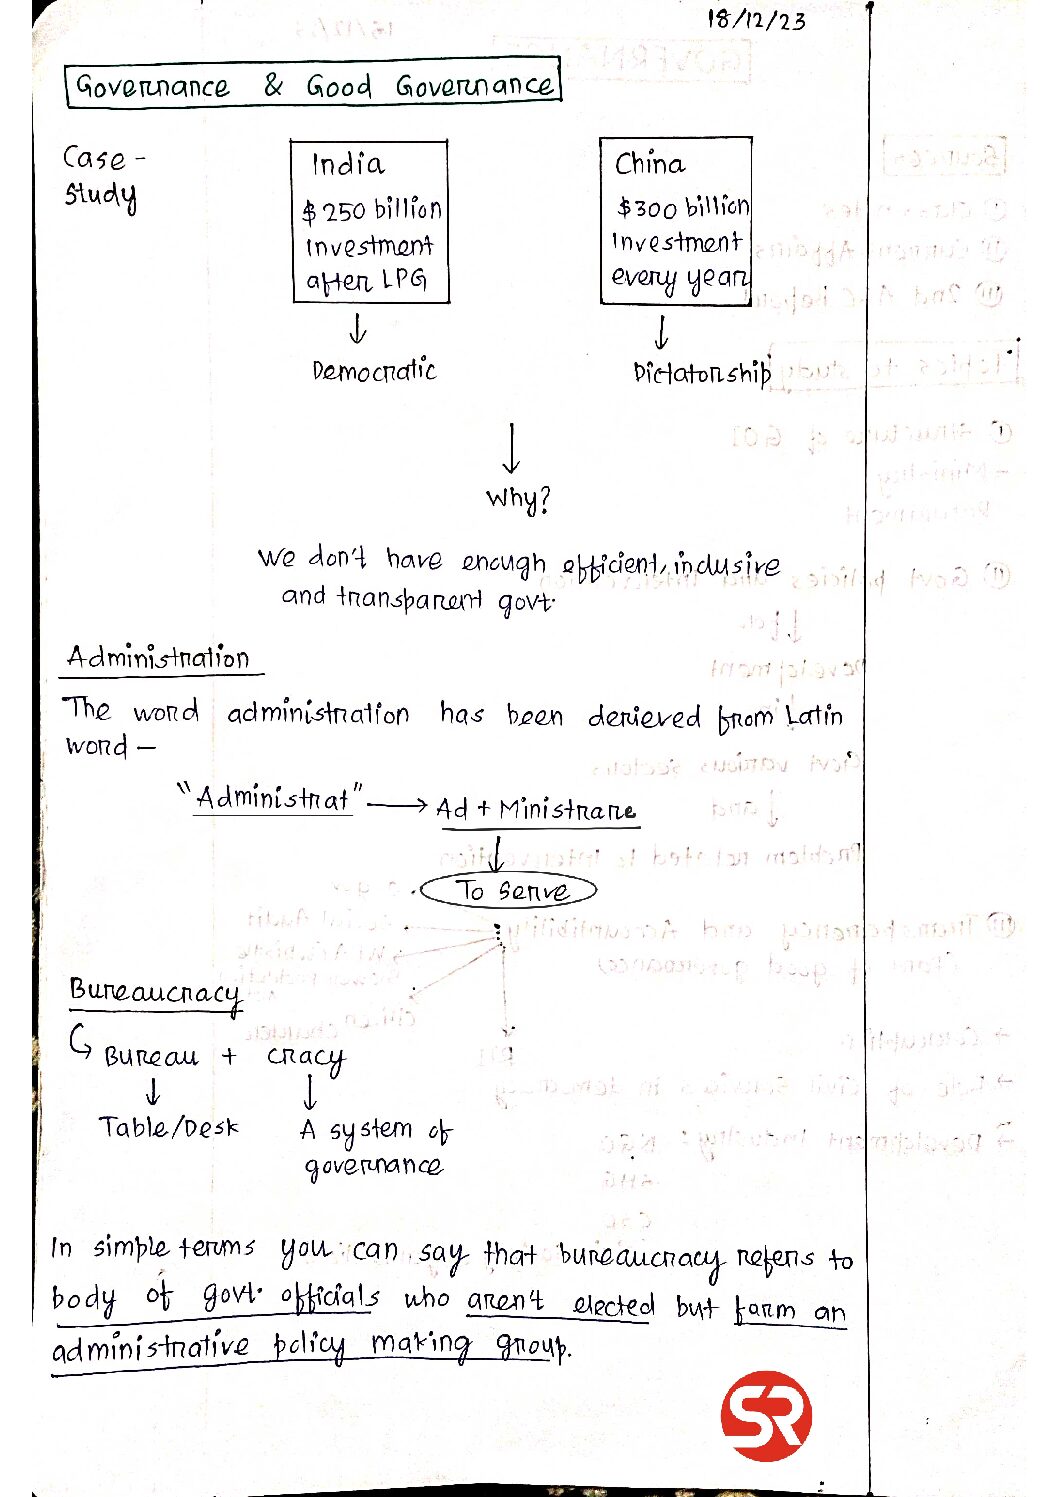 18/12/23
Governance & Good Governance
Case -
Study
India
$ 250 billion
investment
after LPG
China
$300 billion
investment
every year
↓
↓
Democratic
Dictatorship
↓
Why?
We don't have enough efficient, inclusive
and transparent govt.
Administration
The word administration has been derieved from Latin
word –
"Administrat" → Ad + Ministrare
↓
To serve
Bureaucracy
↳ Bureau + cracy
↓ ↓
Table/Desk A system of
governance
In simple terms you can say that bureaucracy refers to
body of govt. officials who aren't elected but farm an
administrative policy making group.
SR